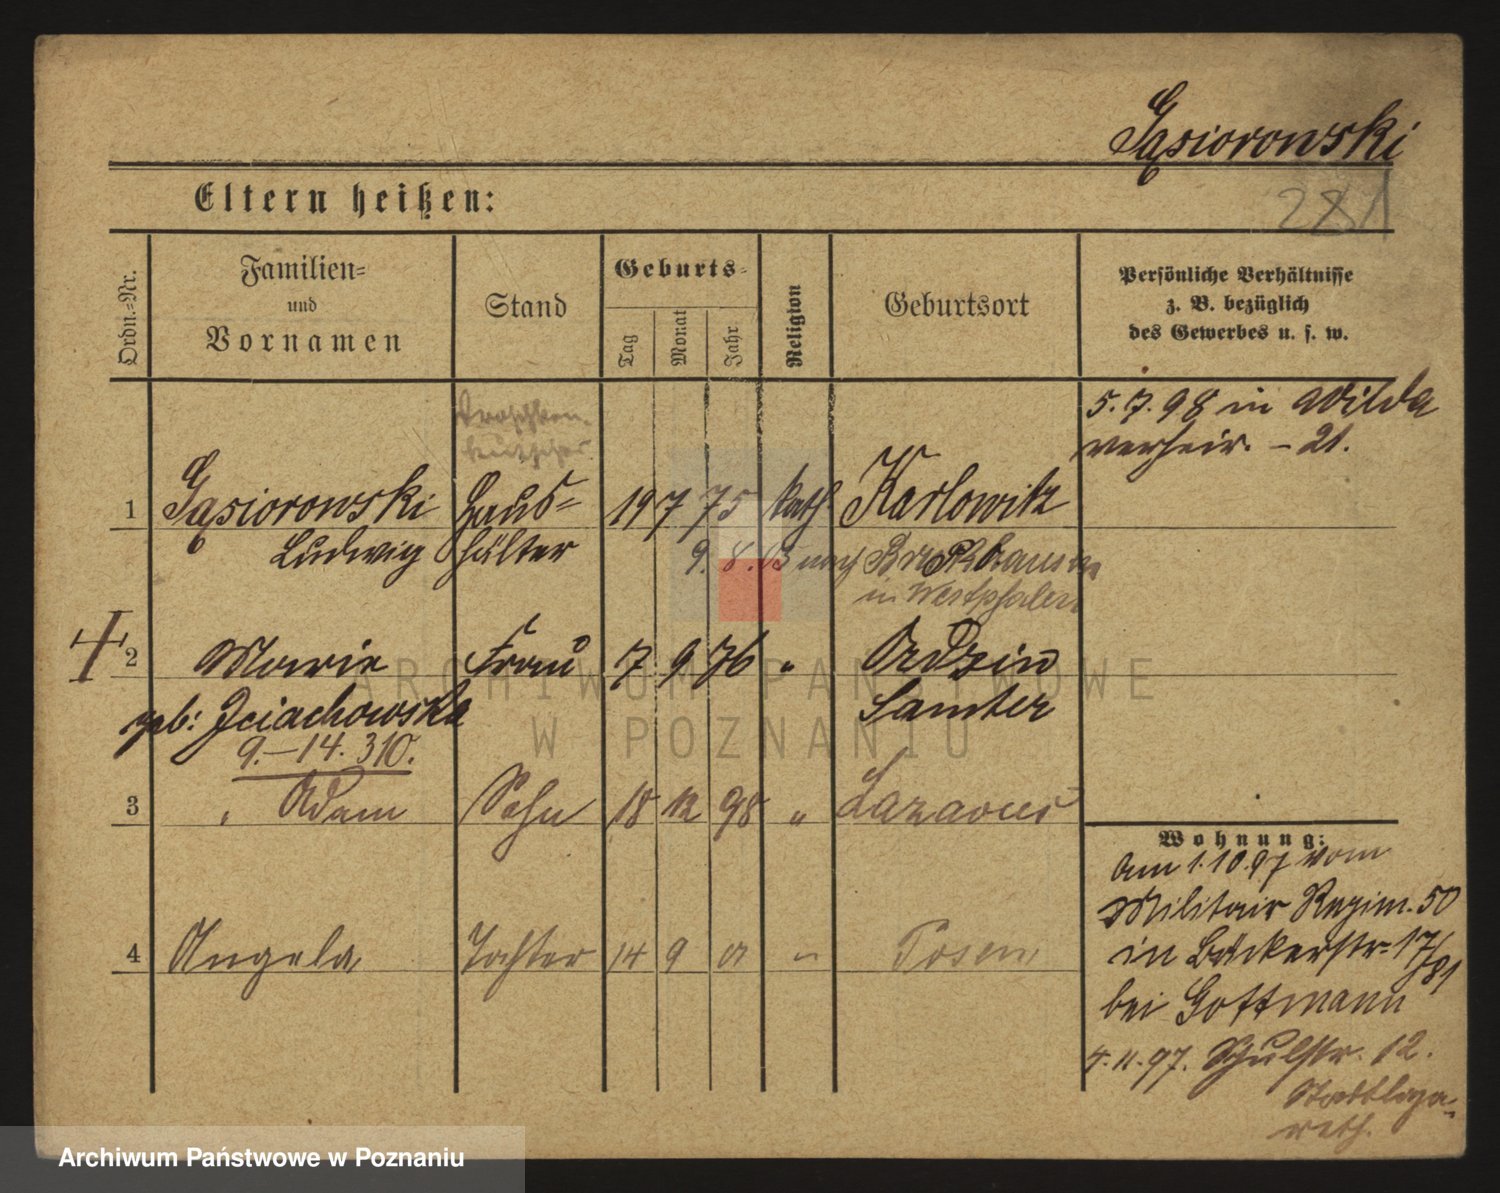 Gąsiorowski
281
Eltern heißen:
Ordn.-Nr.
Familien-
und
Vornamen
Stand
Geburts-
Tag
Monat
Jahr
Religion
Geburtsort
Persönliche Verhältnisse
z. B. bezüglich
des Gewerbes u. s. w.
5.7.98 in Wilda
verheir. – 21.
1 Gąsiorowski Haus- 19 7 75 kath Karlowitz
Ludwig hälter
9. 8. 03 nach
in Westphalen
2 Marie Frau 7 9 76 " Ordzin
Samter
geb:
9.–14.310.
3 " Adam Sohn 18 12 98 " Lazarus
4 Angela Tochter 14 9 01 " Posen
Wohnung:
Am 1.10.97 vom
Militair Regim. 50
in Bäckerstr. 17/81
bei Gottmann
4.11.97. Schulstr. 12.
Stadtlaza-
reth.
ARCHIWUM PAŃSTWOWE
W POZNANIU
Archiwum Państwowe w Poznaniu